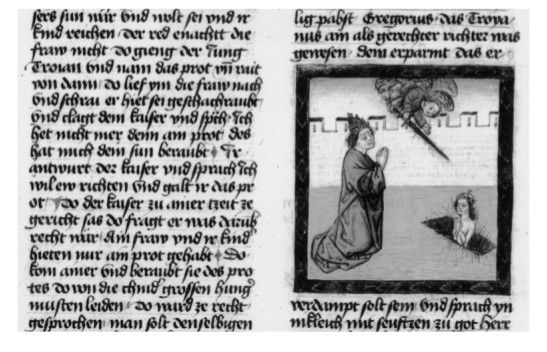 sers sun wär und wolt sei und ir
kind reichen der red enachtt die
fraw nicht do gieng der Jung
Troian und nam das prot und rait
von dann do lief ym die fraw nach
und schrai er hiet sei geschachraubt
und clagt dem kaiser und spch Jch
het nicht mer denn ain prot des
hat mich dein sun beraubt Er
antwurt der kaiser und sprach Jch
wil ew richten und galt ir das pr
ot Do der kaiser zu ainer tzeit ze
gericht sas do fragt er was darüb
recht wär ain fraw und ir kind
hieten nur ain prot gehabt Do
kom ainer und beraubt sie des pro
tes do von die chind grossen hung
musten leiden do ward ze recht
gesprochen man solt denselbigen
lig pabst Gregorius das Troya
nus ain als gerechter richter was
gewesen dem erparmt das er
verdampt solt sein und sprach yn
nikleich mit seuftzen zu got herr